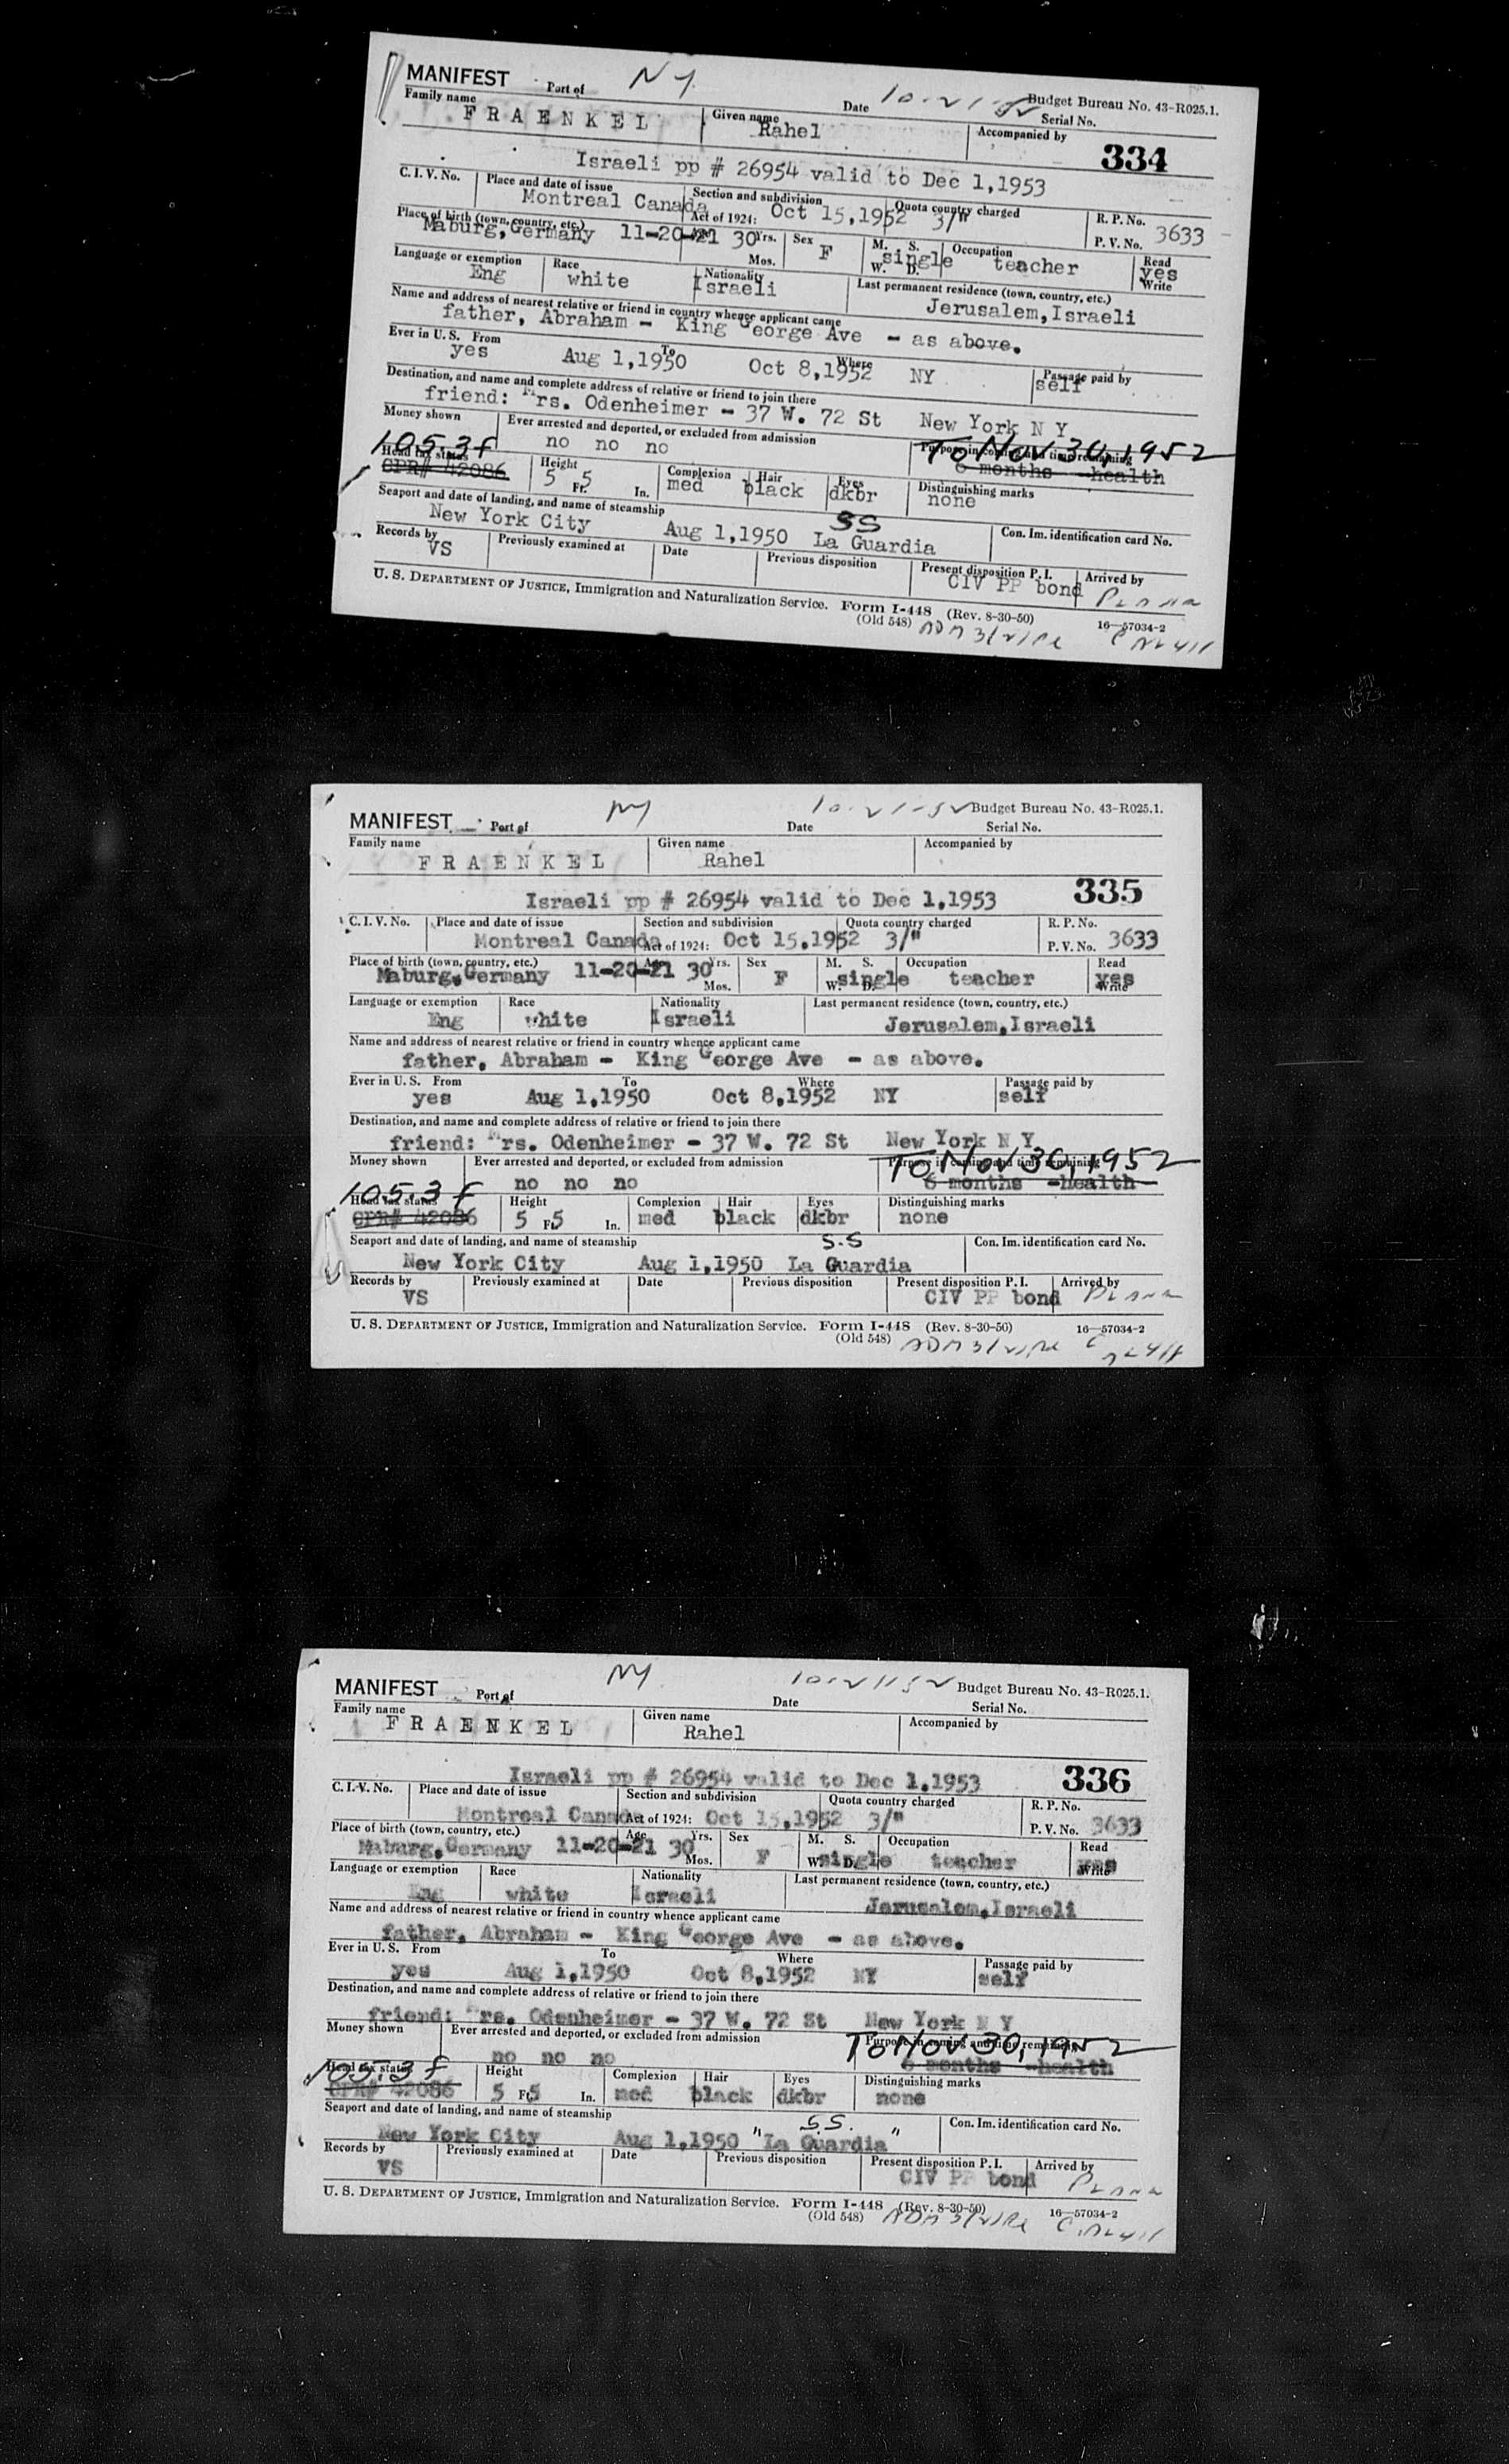 MANIFEST Port of NY Date 10-21-52 Budget Bureau No. 43-R025.1.
Serial No.
Family name FRAENKEL Given name Rahel Accompanied by
334
Israeli pp # 26954 valid to Dec 1,1953
C. I. V. No. Place and date of issue Section and subdivision Quota country charged R. P. No.
Montreal Canada Act of 1924: Oct 15,1952 3/" P. V. No. 3633
Place of birth (town, country, etc.) Age Yrs. Sex M. S. Occupation Read
Maburg,Germany 11-20-21 30 Mos. F W. D. single teacher yes Write
Language or exemption Race Nationality Last permanent residence (town, country, etc.)
Eng white Israeli Jerusalem,Israeli
Name and address of nearest relative or friend in country whence applicant came
father, Abraham - King George Ave - as above.
Ever in U. S. From To Where Passage paid by
yes Aug 1,1950 Oct 8,1952 NY self
Destination, and name and complete address of relative or friend to join there
friend: Mrs. Odenheimer - 37 W. 72 St New York N Y
Money shown Ever arrested and deported, or excluded from admission Purpose in coming and time remaining
no no no To Nov 30, 1952
6 months -health
105.3f
Head tax status Height Complexion Hair Eyes Distinguishing marks
CPR# 42086 5 Ft. 5 In. med black dkbr none
Seaport and date of landing, and name of steamship SS Con. Im. identification card No.
New York City Aug 1,1950 La Guardia
Records by Previously examined at Date Previous disposition Present disposition P. I. Arrived by
VS CIV PP bond
U. S. DEPARTMENT OF JUSTICE, Immigration and Naturalization Service. Form I-448 (Rev. 8-30-50) 16—57034-2
(Old 548)
MANIFEST Port of NY Date 10-21-52 Budget Bureau No. 43-R025.1.
Serial No.
Family name FRAENKEL Given name Rahel Accompanied by
335
Israeli pp # 26954 valid to Dec 1,1953
C. I. V. No. Place and date of issue Section and subdivision Quota country charged R. P. No.
Montreal Canada Act of 1924: Oct 15,1952 3/" P. V. No. 3633
Place of birth (town, country, etc.) Age Yrs. Sex M. S. Occupation Read
Maburg,Germany 11-20-21 30 Mos. F W. D. single teacher yes Write
Language or exemption Race Nationality Last permanent residence (town, country, etc.)
Eng white Israeli Jerusalem,Israeli
Name and address of nearest relative or friend in country whence applicant came
father, Abraham - King George Ave - as above.
Ever in U. S. From To Where Passage paid by
yes Aug 1,1950 Oct 8,1952 NY self
Destination, and name and complete address of relative or friend to join there
friend: Mrs. Odenheimer - 37 W. 72 St New York N Y
Money shown Ever arrested and deported, or excluded from admission Purpose in coming and time remaining
no no no To Nov 30, 1952
6 months -health
105.3f
Head tax status Height Complexion Hair Eyes Distinguishing marks
CPR# 42086 5 Ft. 5 In. med black dkbr none
Seaport and date of landing, and name of steamship S.S Con. Im. identification card No.
New York City Aug 1,1950 La Guardia
Records by Previously examined at Date Previous disposition Present disposition P. I. Arrived by
VS CIV PP bond
U. S. DEPARTMENT OF JUSTICE, Immigration and Naturalization Service. Form I-448 (Rev. 8-30-50) 16—57034-2
(Old 548)
MANIFEST Port of NY Date 10-21-52 Budget Bureau No. 43-R025.1.
Serial No.
Family name FRAENKEL Given name Rahel Accompanied by
336
Israeli pp # 26954 valid to Dec 1,1953
C. I. V. No. Place and date of issue Section and subdivision Quota country charged R. P. No.
Montreal Canada Act of 1924: Oct 15,1952 3/" P. V. No. 3633
Place of birth (town, country, etc.) Age Yrs. Sex M. S. Occupation Read
Maburg,Germany 11-20-21 30 Mos. F W. D. single teacher yes Write
Language or exemption Race Nationality Last permanent residence (town, country, etc.)
Eng white Israeli Jerusalem,Israeli
Name and address of nearest relative or friend in country whence applicant came
father, Abraham - King George Ave - as above.
Ever in U. S. From To Where Passage paid by
yes Aug 1,1950 Oct 8,1952 NY self
Destination, and name and complete address of relative or friend to join there
friend: Mrs. Odenheimer - 37 W. 72 St New York N Y
Money shown Ever arrested and deported, or excluded from admission Purpose in coming and time remaining
no no no To Nov 30, 1952
6 months -health
105.3f
Head tax status Height Complexion Hair Eyes Distinguishing marks
CPR# 42086 5 Ft. 5 In. med black dkbr none
Seaport and date of landing, and name of steamship S.S. Con. Im. identification card No.
New York City Aug 1,1950 "La Guardia"
Records by Previously examined at Date Previous disposition Present disposition P. I. Arrived by
VS CIV PP bond
U. S. DEPARTMENT OF JUSTICE, Immigration and Naturalization Service. Form I-448 (Rev. 8-30-50) 16—57034-2
(Old 548)